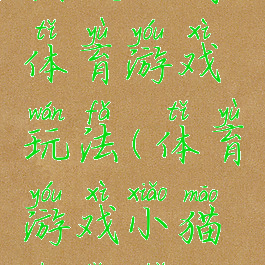 tǐ yù yóu xì
体育游戏
wán fǎ tǐ yù
玩法(体育
yóu xì xiǎo māo
游戏小猫